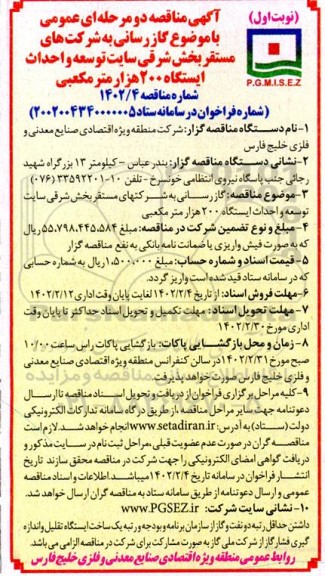 (نوبت اول)
آگهی مناقصه دو مرحله ای عمومی
با موضوع گاز رسانی به شرکت های
مستقر بخش شرقی سایت توسعه و احداث
ایستگاه ۲۰۰ هزار متر مکعبی
P.G.M.I.S.E.Z
شماره مناقصه ۱۴۰۲/۴
(شماره فراخوان در سامانه ستاد ۲۰۰۲۰۰۴۳۴۰۰۰۰۰۵)
۱- نام دستگاه مناقصه گزار: شرکت منطقه ویژه اقتصادی صنایع معدنی و
فلزی خلیج فارس
۲- نشانی دستگاه مناقصه گزار: بندرعباس - کیلومتر ۱۳ بزرگراه شهید
رجائی جنب پاسگاه نیروی انتظامی خونسرخ - تلفن ۱۰-۳۳۵۹۲۲۰۱ (۰۷۶)
۳- موضوع مناقصه: گاز رسانی به شرکتهای مستقر بخش شرقی سایت
توسعه و احداث ایستگاه ۲۰۰ هزار متر مکعبی
۴- مبلغ و نوع تضمین شرکت در مناقصه: مبلغ ۵۵.۷۹۸.۴۴۵.۵۸۴ ریال
که به صورت فیش واریزی یا ضمانت نامه بانکی به نفع مناقصه گزار
۵- قیمت اسناد و شماره حساب: مبلغ ۱.۵۰۰.۰۰۰ ریال به شماره حسابی
که در سامانه ستاد قید شده است واریز گردد.
۶- مهلت فروش اسناد: از تاریخ ۱۴۰۲/۲/۴ لغایت پایان وقت اداری ۱۴۰۲/۲/۱۲
۷- مهلت تحویل اسناد: مهلت تکمیل و تحویل اسناد حداکثر تا پایان وقت
اداری مورخ ۱۴۰۲/۲/۳۰
۸- زمان و محل بازگشایی پاکات: بازگشایی پاکات راس ساعت ۱۰/۰۰
صبح مورخ ۱۴۰۲/۲/۳۱ در سالن کنفرانس منطقه ویژه اقتصادی صنایع معدنی
و فلزی خلیج فارس صورت خواهد پذیرفت.
۹- کلیه مراحل برگزاری فراخوان از دریافت و تحویل اسناد مناقصه تا ارسال
دعوتنامه جهت سایر مراحل مناقصه، از طریق درگاه سامانه تدارکات الکترونیکی
دولت (ستاد) به آدرس: www.setadiran.ir انجام خواهد شد. لازم است
مناقصه گران در صورت عدم عضویت قبلی، مراحل ثبت نام در سایت مذکور و
دریافت گواهی امضای الکترونیکی را جهت شرکت در مناقصه محقق سازند تاریخ
انتشار فراخوان در سامانه تاریخ ۱۴۰۲/۲/۴ میباشد. اطلاعات و اسناد مناقصه
عمومی و ارسال دعوتنامه از طریق سامانه ستاد به مناقصه گران ارسال خواهد شد.
۱۰- نشانی سایت شرکت: www.PGSEZ.ir
داشتن حداقل رتبه دو نفت و گاز از سازمان برنامه و بودجه و رتبه یک ساخت ایستگاه تقلیل و اندازه
گیری فشار گاز از شرکت ملی گاز به صورت مشارکت برای شرکت در مناقصه الزامی می باشد.
روابط عمومی منطقه ویژه اقتصادی صنایع معدنی و فلزی خلیج فارس